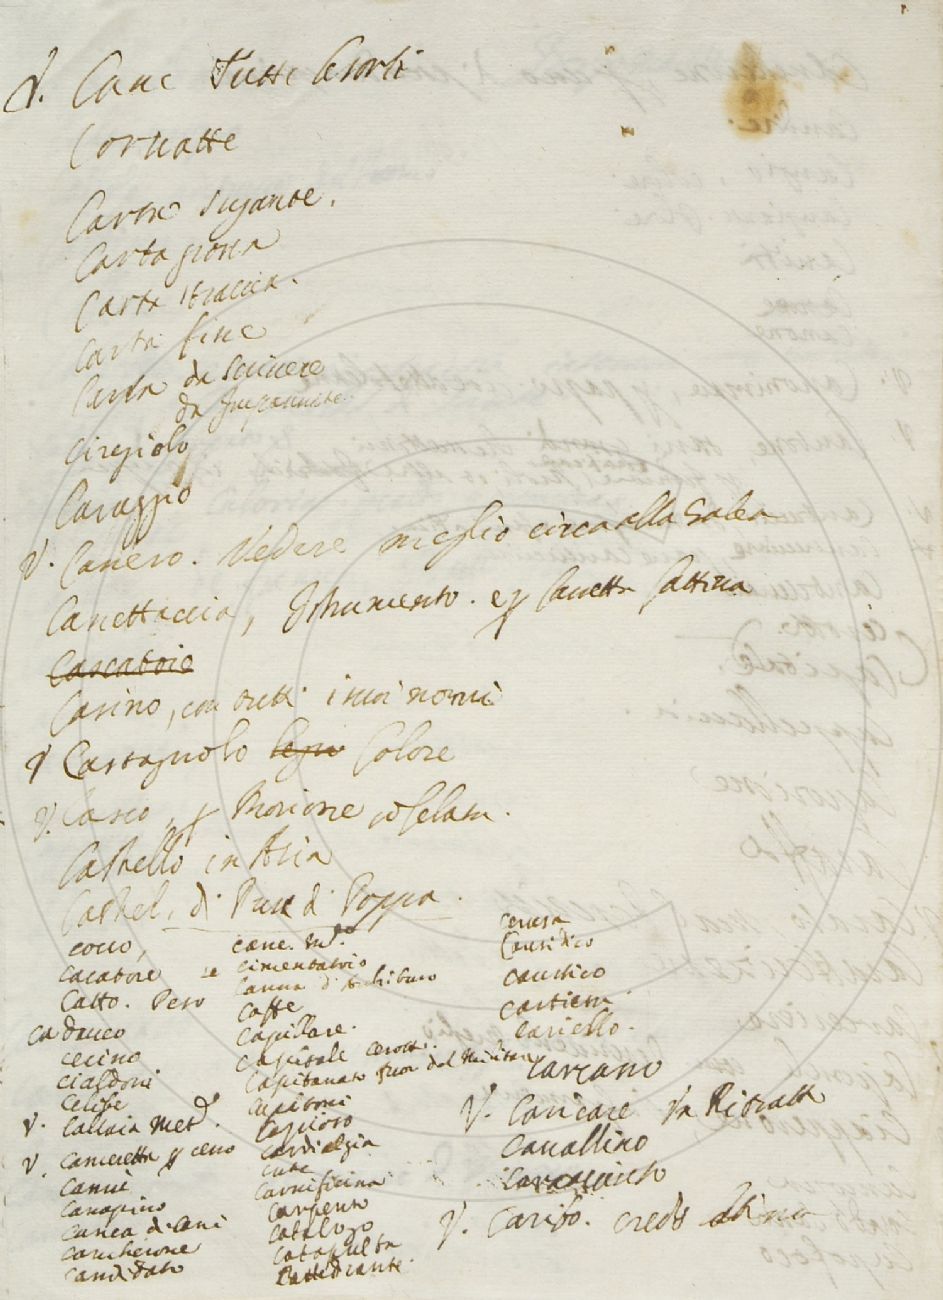 V. Cane Tutte le sorti
Cornatte
Carta sugante.
Carta grossa
Carta straccia.
Carta fine
Carta da scrivere
da Impannate
Ciregiolo
Caraggio
V. Canero. Vedere meglio circa alla Galea
Canettaccia, Istrumento. e
Cascatoie
Casino, con tutti i suoi nomi
V Castagnolo legno Colore
V. Casco, p Morione, o Celata.
Castello in Aria
Castel, di Pux di Poppa.
cocco,
cacatore
Catto. Peso
Caduceo
cecino
cialdoni
Celibe
V. Callaia Met.
V. cameretta p ceno
Canne
Canapino
Canea di Cani
Cancherone
Candidato
cane. Md.
cimentatorio
Canna d'Archibuso
Caffe
Capillare.
Capitale
Capitanato fuor del Militare
Capitoni
Capioso
Cardialgia
Carnificina
Carpento
Catalogo
Catapulta
Cattedrante
cerusa
Causidico
caustico
cartiera.
Cariello.
Carcano
V. Caricare in Ritratto
Cavallino
V. Caribo. credo